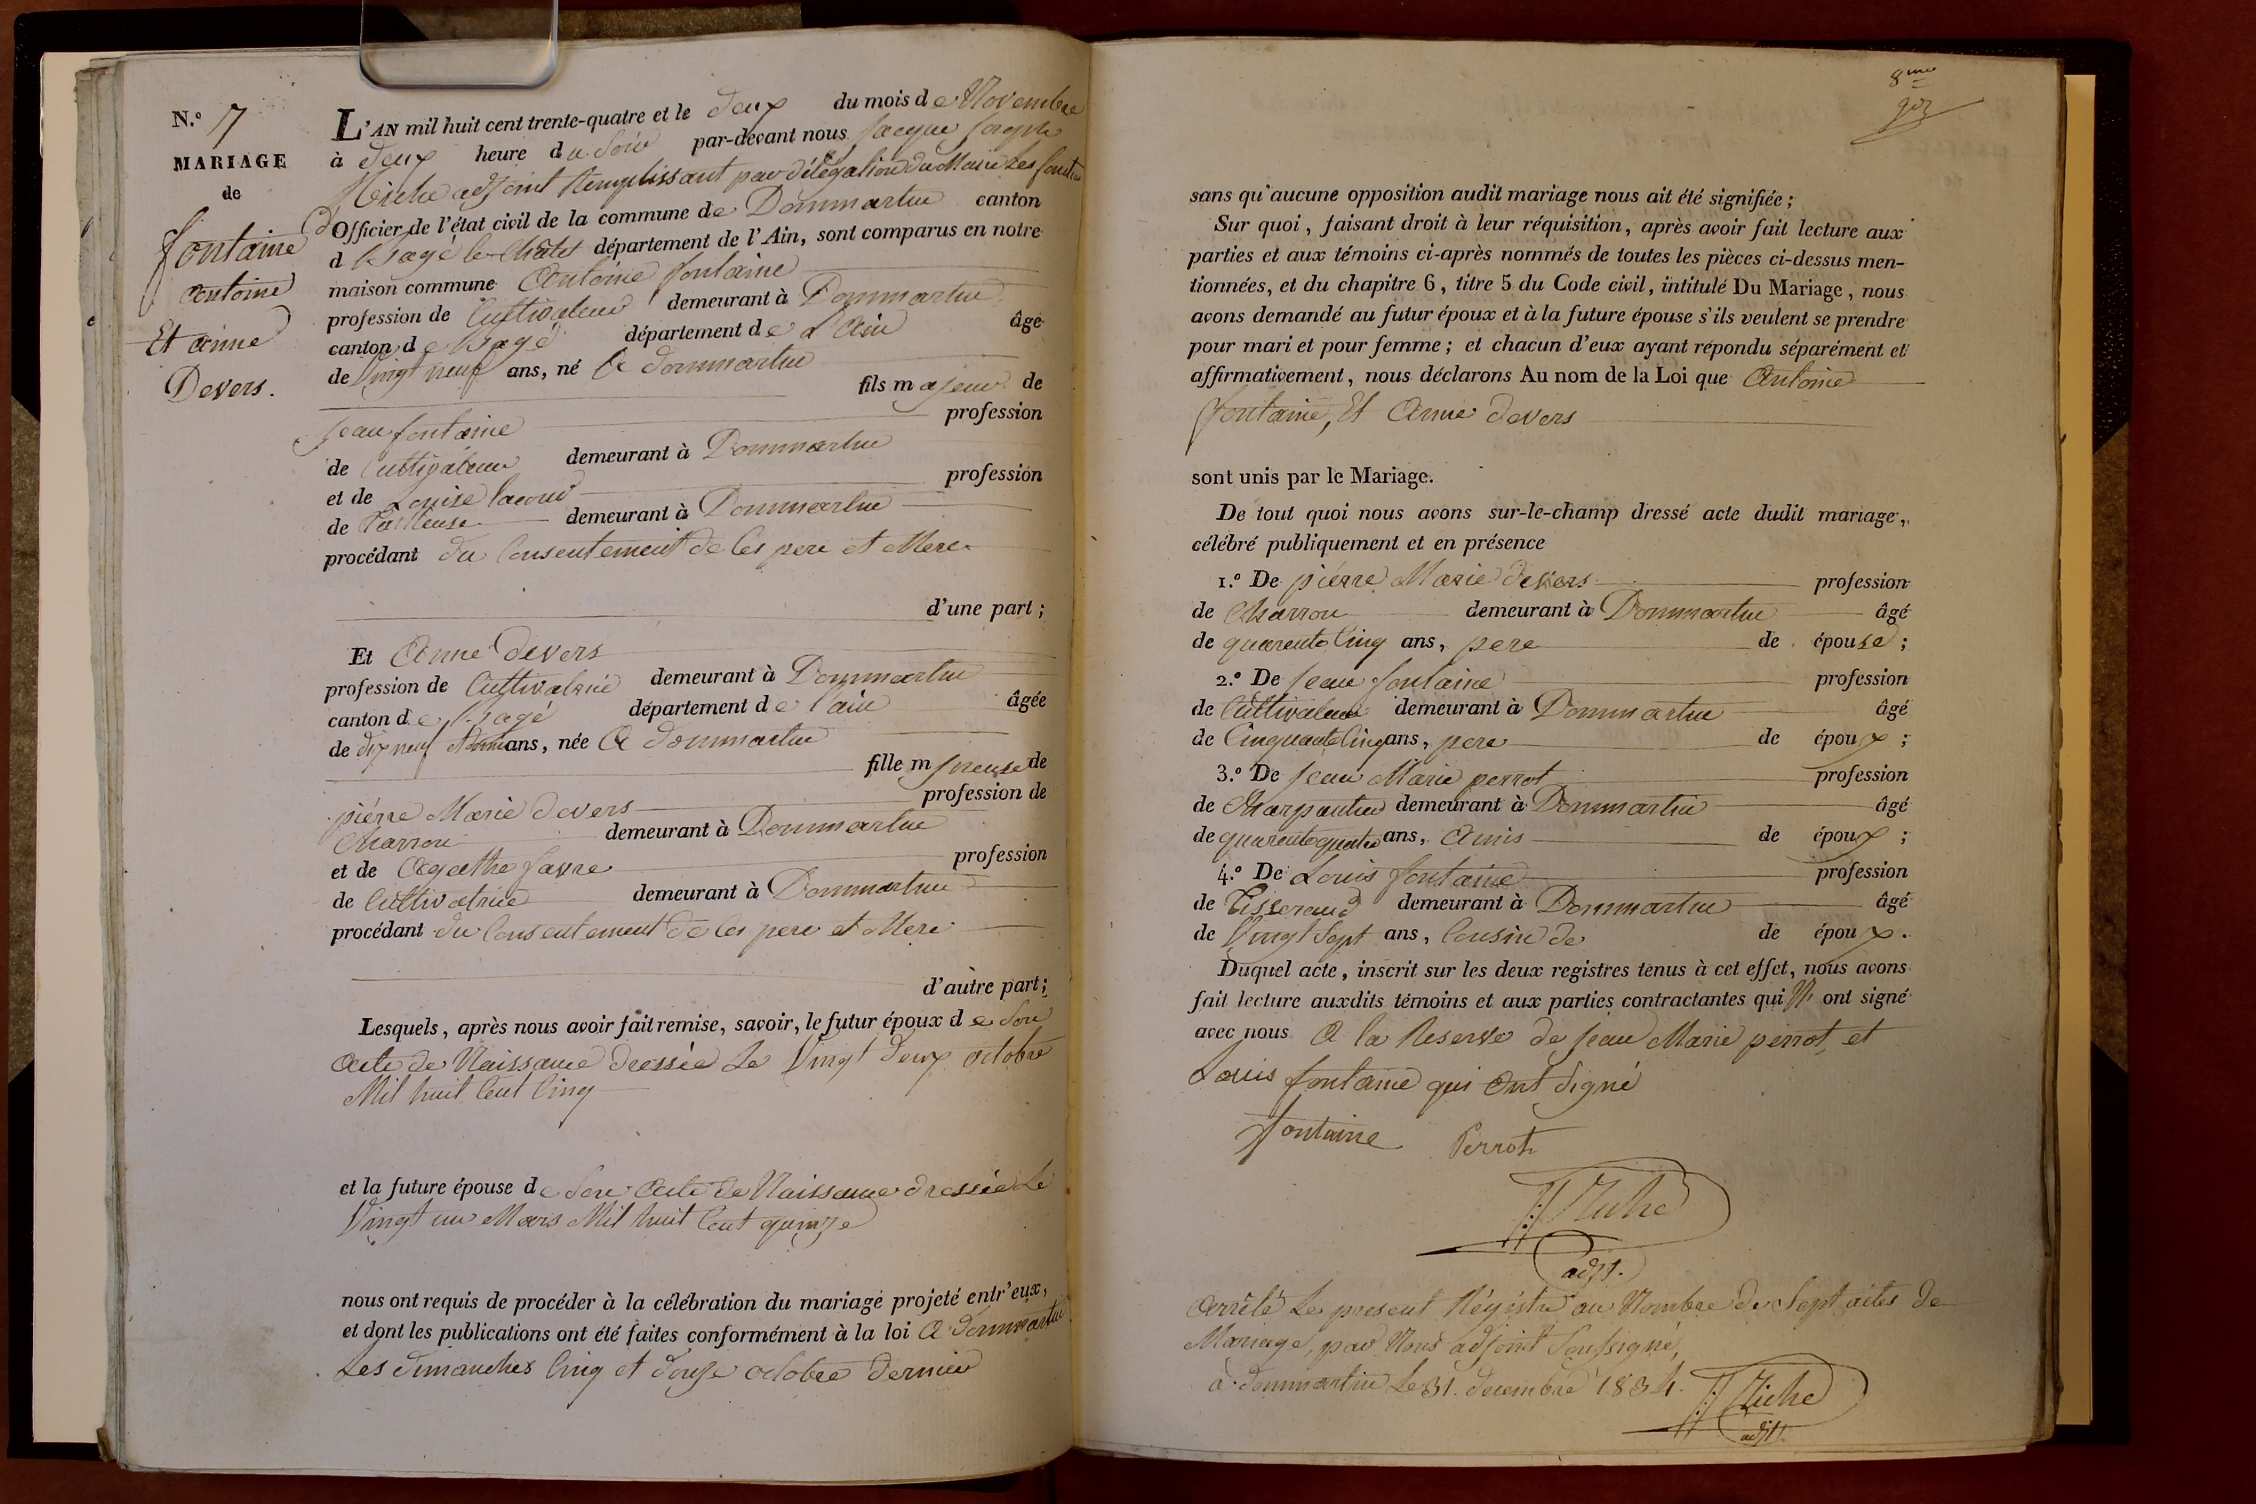 N.º 7
MARIAGE
de
fontaine
antoine
Et anne
Devers.
L'AN mil huit cent trente-quatre et le deux du mois de Novembre
à deux heure du Soir par-devant nous Jacque Joseph
adjoint Remplissant par délégation du Maire Les fonctions
d'Officier de l'état civil de la commune de Dommartin canton
d Bagé le Châtel département de l'Ain, sont comparus en notre
maison commune Antoine fontaine
profession de Cultivateur demeurant à Dommartin
canton de Bagé département de L'Ain âgé
de Vingt neuf ans, né A dommartin
fils majeur de
Jean fontaine profession
de Cultivateur demeurant à Dommartin
et de Louise profession
de Tailleuse demeurant à Dommartin
procédant du Consentement de Ces pere et Mere
d'une part ;
Et Anne devers
profession de Cultivatrice demeurant à Dommartin
canton de Bagé département de l'ain âgée
de dix neuf ans, née A dommartin
fille mineuse de
pierre Marie devers profession de
Charron demeurant à Dommartin
et de Agathe favre profession
de Cultivatrice demeurant à Dommartin
procédant du Consentement de Ces pere et Mere
d'autre part ;
Lesquels, après nous avoir fait remise, savoir, le futur époux de Son
Acte de Naissance dressée Le Vingt deux octobre
Mil huit Cent Cinq
et la future épouse de Son Acte de Naissance dressée Le
Vingt un Mars Mil huit Cent quinze
nous ont requis de procéder à la célébration du mariage projeté entr'eux,
et dont les publications ont été faites conformément à la loi A dommartin
Les dimanches Cinq et douze octobre dernier
8me
sans qu'aucune opposition audit mariage nous ait été signifiée ;
Sur quoi, faisant droit à leur réquisition, après avoir fait lecture aux
parties et aux témoins ci-après nommés de toutes les pièces ci-dessus men-
tionnées, et du chapitre 6, titre 5 du Code civil, intitulé Du Mariage, nous
avons demandé au futur époux et à la future épouse s'ils veulent se prendre
pour mari et pour femme ; et chacun d'eux ayant répondu séparément et
affirmativement, nous déclarons Au nom de la Loi que Antoine
fontaine, Et Anne devers
sont unis par le Mariage.
De tout quoi nous avons sur-le-champ dressé acte dudit mariage,
célébré publiquement et en présence
1.º De pierre Marie devers profession
de Charron demeurant à Dommartin âgé
de quarente Cinq ans, pere de épouse ;
2.º De Jean fontaine profession
de Cultivateur demeurant à Dommartin âgé
de Cinquante Cinq ans, pere de époux ;
3.º De Jean Marie perrot profession
de Charpentier demeurant à Dommartin âgé
de quarente quatre ans, Amis de époux ;
4.º De Louis fontaine profession
de Tisserand demeurant à Dommartin âgé
de Vingt Sept ans, Cousin de de époux.
Duquel acte, inscrit sur les deux registres tenus à cet effet, nous avons
fait lecture auxdits témoins et aux parties contractantes qui N' ont signé
avec nous A la Reserve de Jean Marie perrot, et
Louis fontaine qui Ont Signé
fontaine Perrot
adjt.
Arrêlé Le present Régistre au Nombre de Sept actes de
Mariage, par Nous adjoint Soussigné,
à dommartin Le 31. decembre 1834.
adjt.